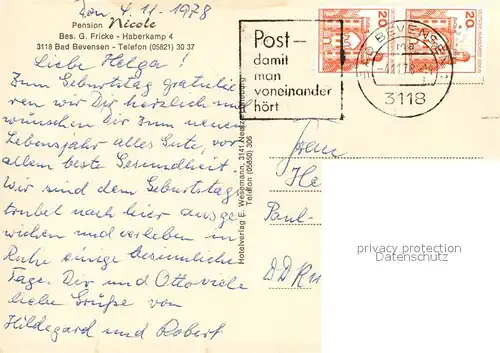 Don, 4.11.1978
Pension Nicole
Bes. G. Fricke - Haberkamp 4
3118 Bad Bevensen - Telefon (05821) 30 37
Liebe Helga!
Zum Geburtstag gratulie-
ren wir Dir herzlich und
wünschen Dir zum neuen
Lebensjahr alles Gute, vor
allem beste Gesundheit.
Wir sind dem Geburtstags-
trubel nach hier ausge-
wichen und verleben in
Ruhe einige besinnliche
Tage. Dir und Otto viele
liebe Grüße von
Hildegard und Robert
Hotelverlag E. Wesemann, 3141
Telefon (05850) 306
Post-
damit
man
voneinander
hört
BEVENSEN
3118
20
20
Frau
He
Paul-
DDR
privacy protection
Datenschutz